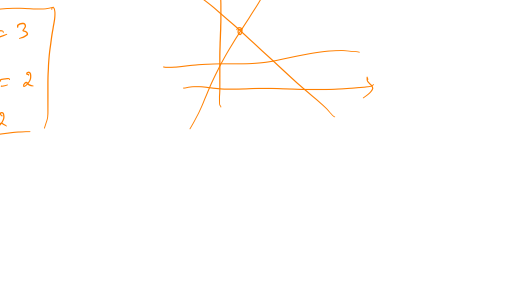 = 3
= 2
2